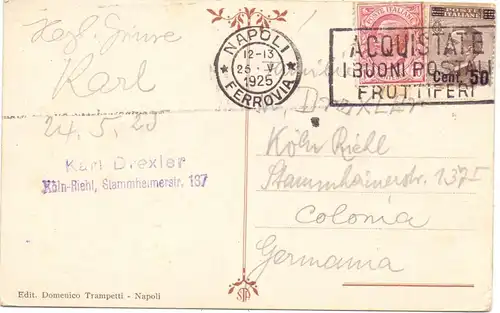 Hzgl. Grüsse
Karl
24.5.25
Karl Drexler
Köln-Riehl, Stammheimerstr. 137
Edit. Domenico Trampetti - Napoli
NAPOLI
12-13
25 · V
1925
FERROVIA
POSTE ITALIANE
POSTE ITALIANE
Cent. 50
ACQUISTATE
I BUONI POSTALI
FRUTTIFERI
Familie
Drexler
Köln Riehl
Stammheimerstr. 137 I
Colonia
Germania